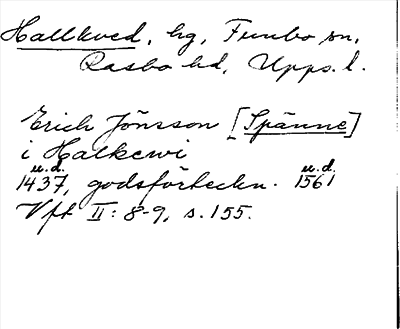 Hallkved, hg, Funbo sn,
Rasbo hd, Upps. l.
Erich Jönsson [Spänne]
i Halkewi
u.d. u.d.
1437, godsförteckn. 1561
Vft II: 8-9, s. 155.